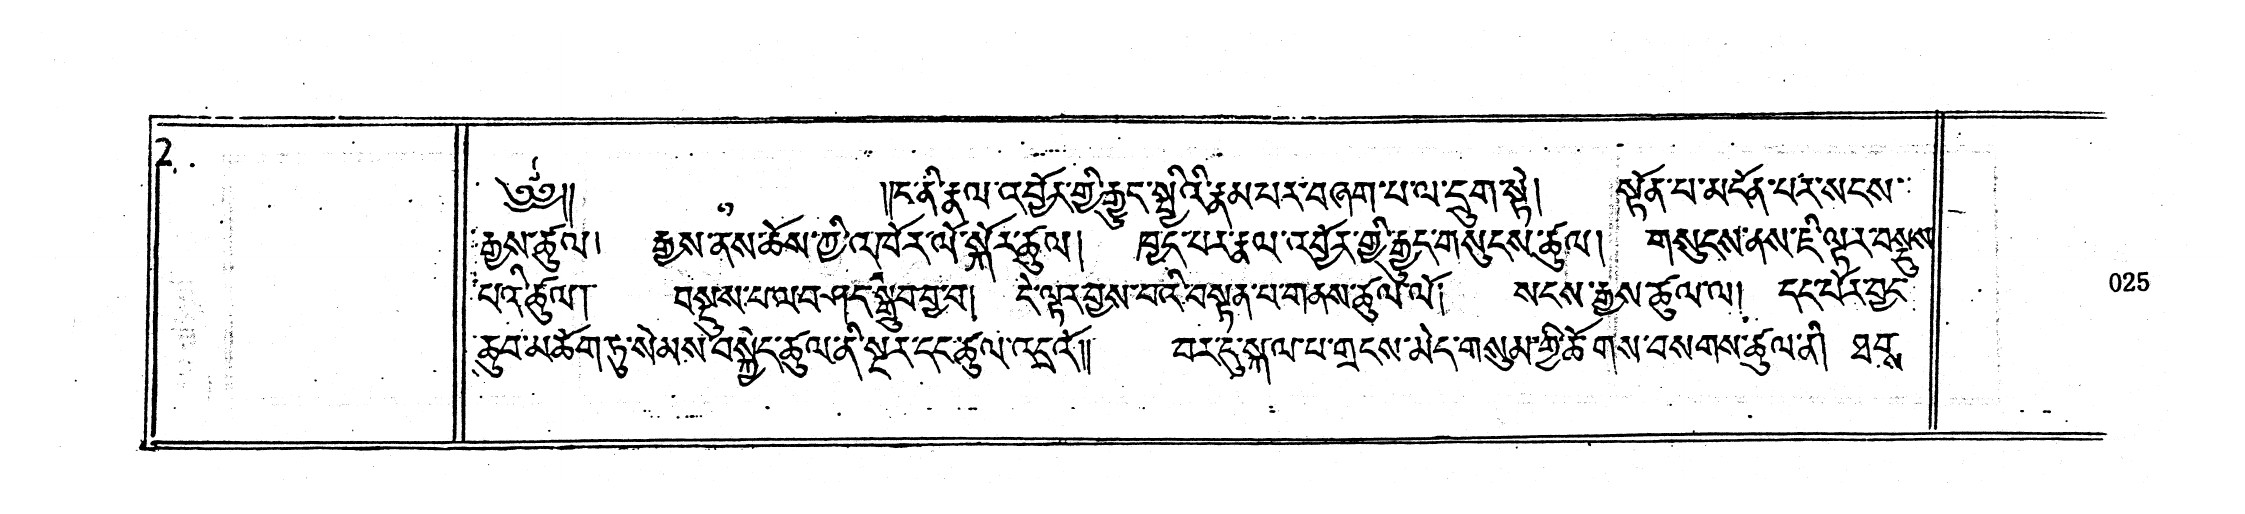 2
༄༅།། །།ང་ནི་རྣལ་འབྱོར་གྱི་རྒྱུད་སྤྱིའི་རྣམ་པར་བཞག་པ་ལ་དྲུག་སྟེ། སྟོན་པ་མངོན་པར་སངས་
རྒྱས་ཚུལ། རྒྱས་ནས་ཆོས་ཀྱི་འཁོར་ལོ་སྐོར་ཚུལ། ཁྱད་པར་རྣལ་འབྱོར་གྱི་རྒྱུད་གསུངས་ཚུལ། གསུངས་ནས་ཇི་ལྟར་བསྡུས་
པའི་ཚུལ། བསྡུས་པ་ལ་བཤད་སྒྲུབ་བྱ་བ། དེ་ལྟར་བྱས་པའི་བསྟན་པ་གནས་ཚུལ་ལོ། སངས་རྒྱས་ཚུལ་ལ། དང་པོར་བྱང་
ཆུབ་མཆོག་ཏུ་སེམས་བསྐྱེད་ཚུལ་ནི་སྔར་དང་ཚུལ་འདྲའོ།། བར་དུ་སྐལ་པ་གྲངས་མེད་གསུམ་ཀྱི་ཚོགས་བསགས་ཚུལ་ནི
025